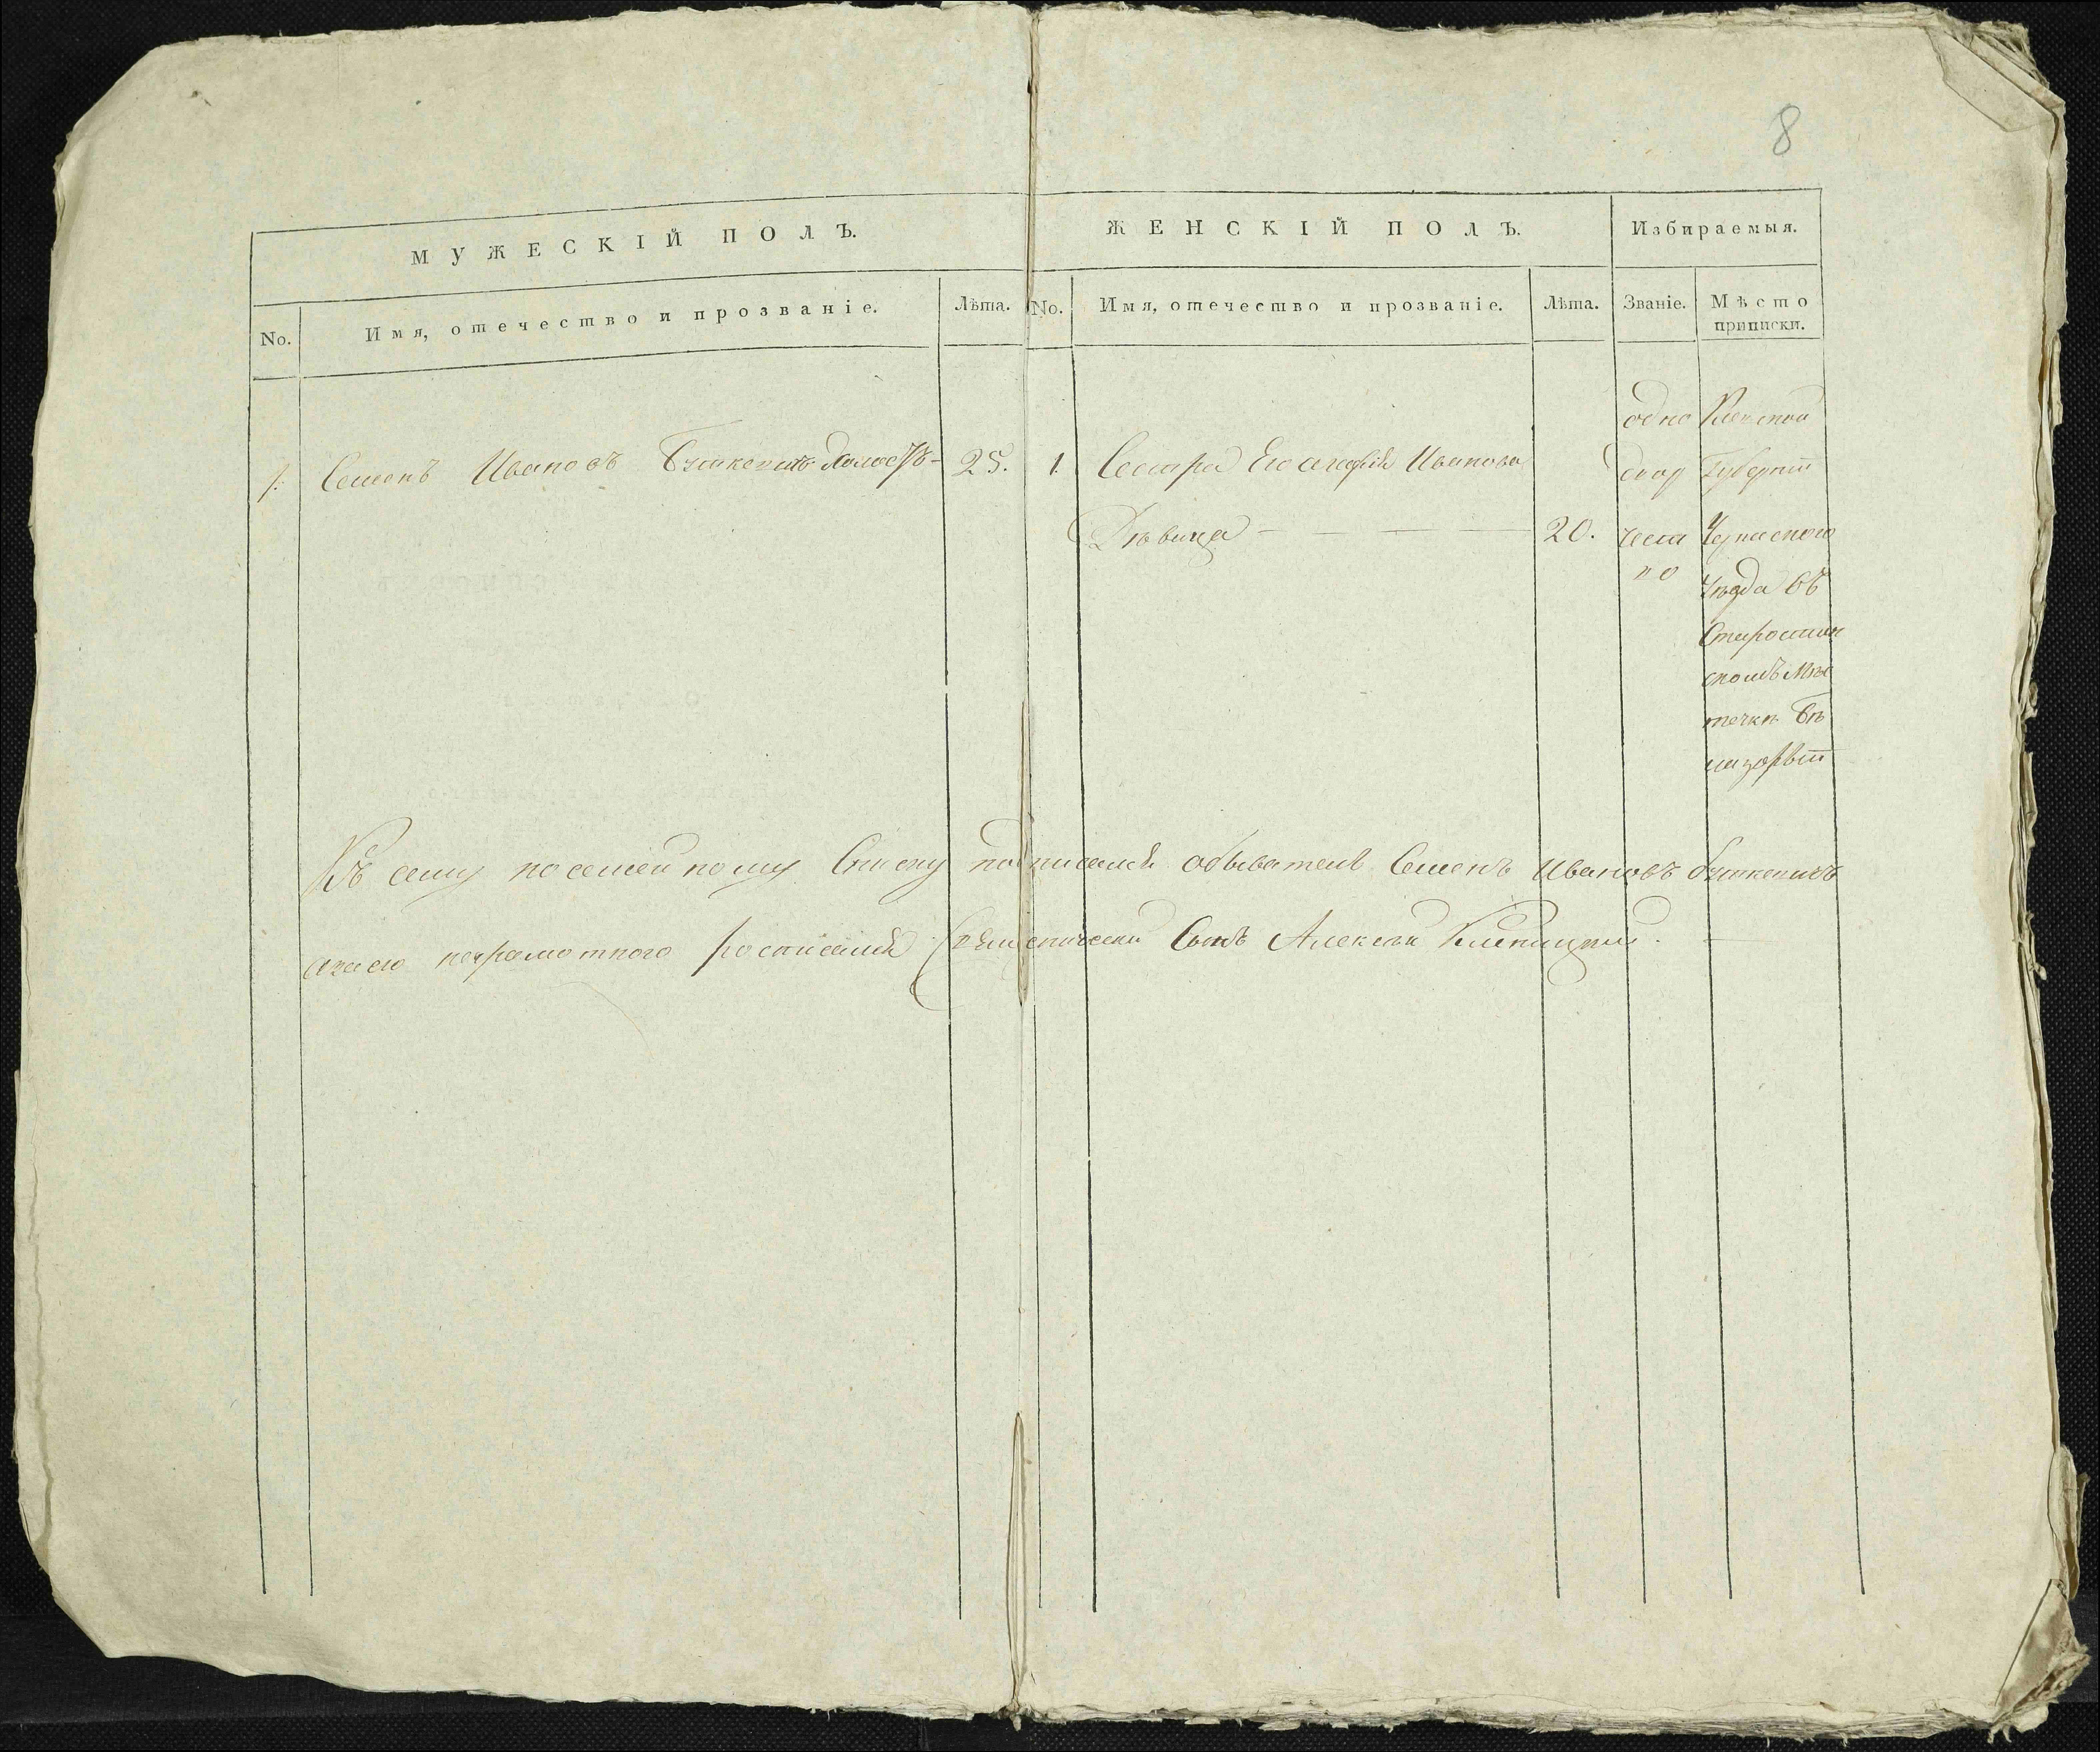 8
МУЖЕСКІЙ ПОЛЪ.
ЖЕНСКІЙ ПОЛЪ.
Избираемыя.
No.
Имя, отечество и прозваніе.
Лѣта.
No.
Имя, отечество и прозваніе.
Лѣта.
Званіе.
Мѣсто
приписки.
1.
Семенъ Ивановъ Буткевичъ холостъ-
25.
1.
Сестра Его Агафія Иванова
Дѣвица
20.
одно
двор
чест
во
Киевской
Губерніи
Черкаского
Уезда въ
Старостин
скомъ Мѣс
течкѣ Бѣ
лозорьи
Къ сему посемейному Списку подписался обыватель Семенъ Ивановъ Буткевичъ
а за его неграмотного росписался Священнически Сынъ Алексѣй